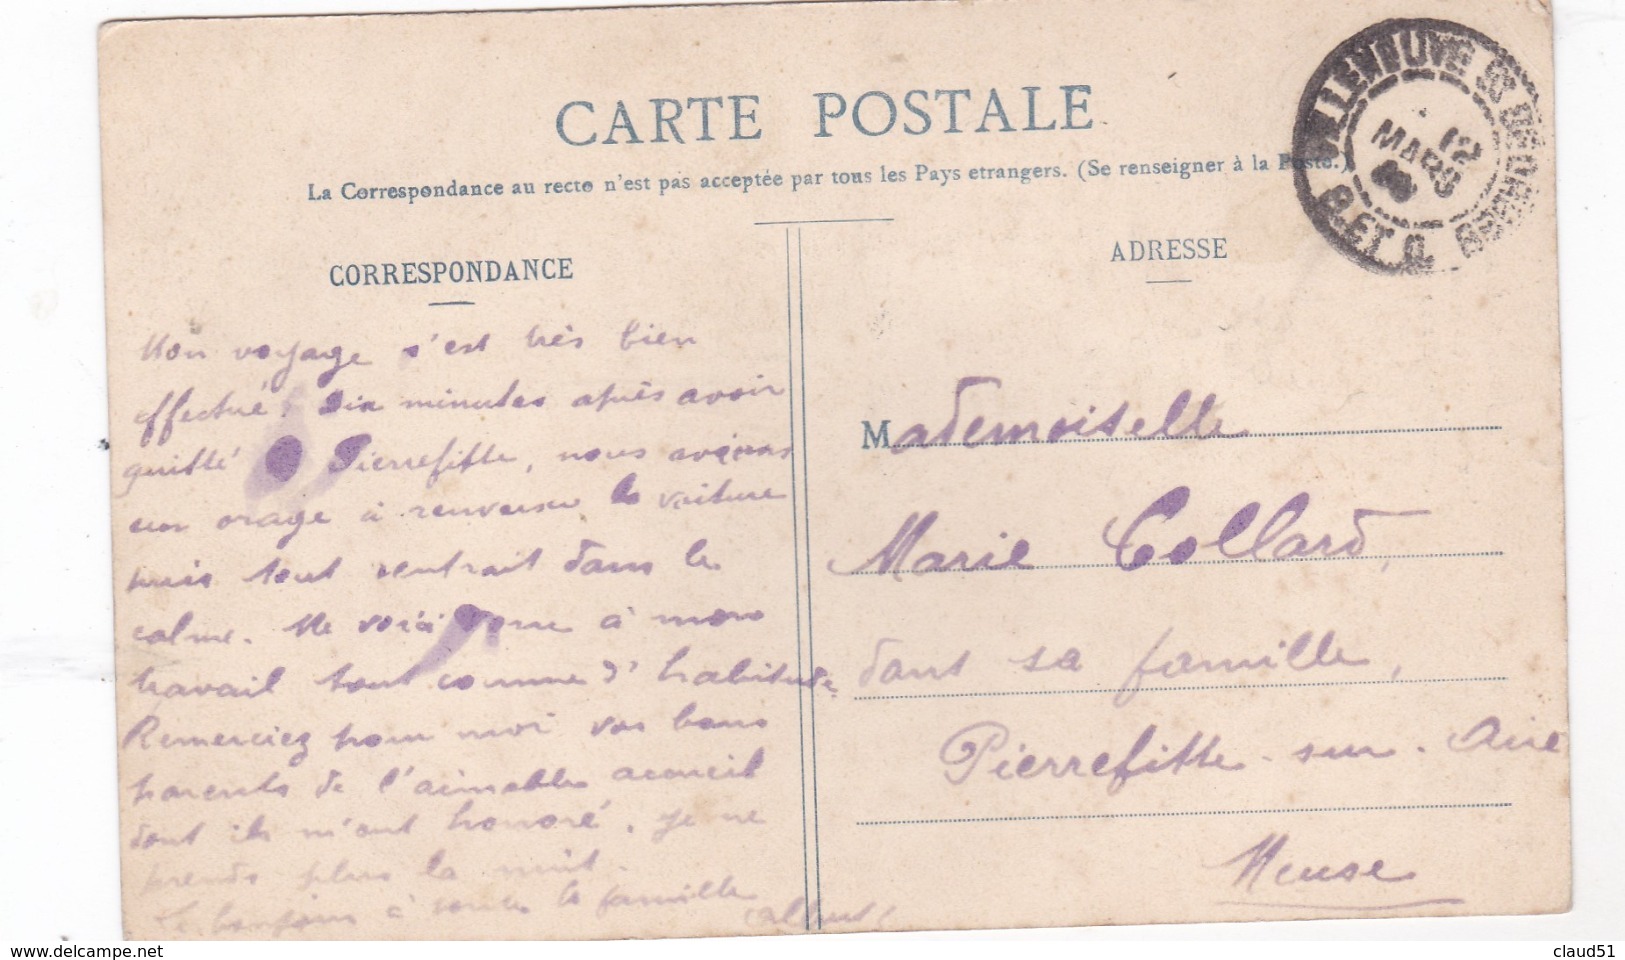 CARTE POSTALE
La Correspondance au recto n'est pas acceptée par tous les Pays etrangers. (Se renseigner à la Poste.)
CORRESPONDANCE
Mon voyage s'est très bien
effectué. Dix minutes après avoir
quitté Pierrefitte, nous avions
un orage à renverser la voiture
mais tout rentrait dans le
calme. Me voici à mon
travail tout comme d'habitude.
Remerciez pour moi vos bons
parents de l'aimable accueil
dont ils m'ont honoré. Je ne
prends plus la nuit.
bonjour à toute la famille
Albert
ADRESSE
Mademoiselle
Marie Collard,
dans sa famille,
Pierrefitte-sur-Aire
Meuse
VILLENEUVE ST GEORGES
12
MARS
S. ET O.
claud51